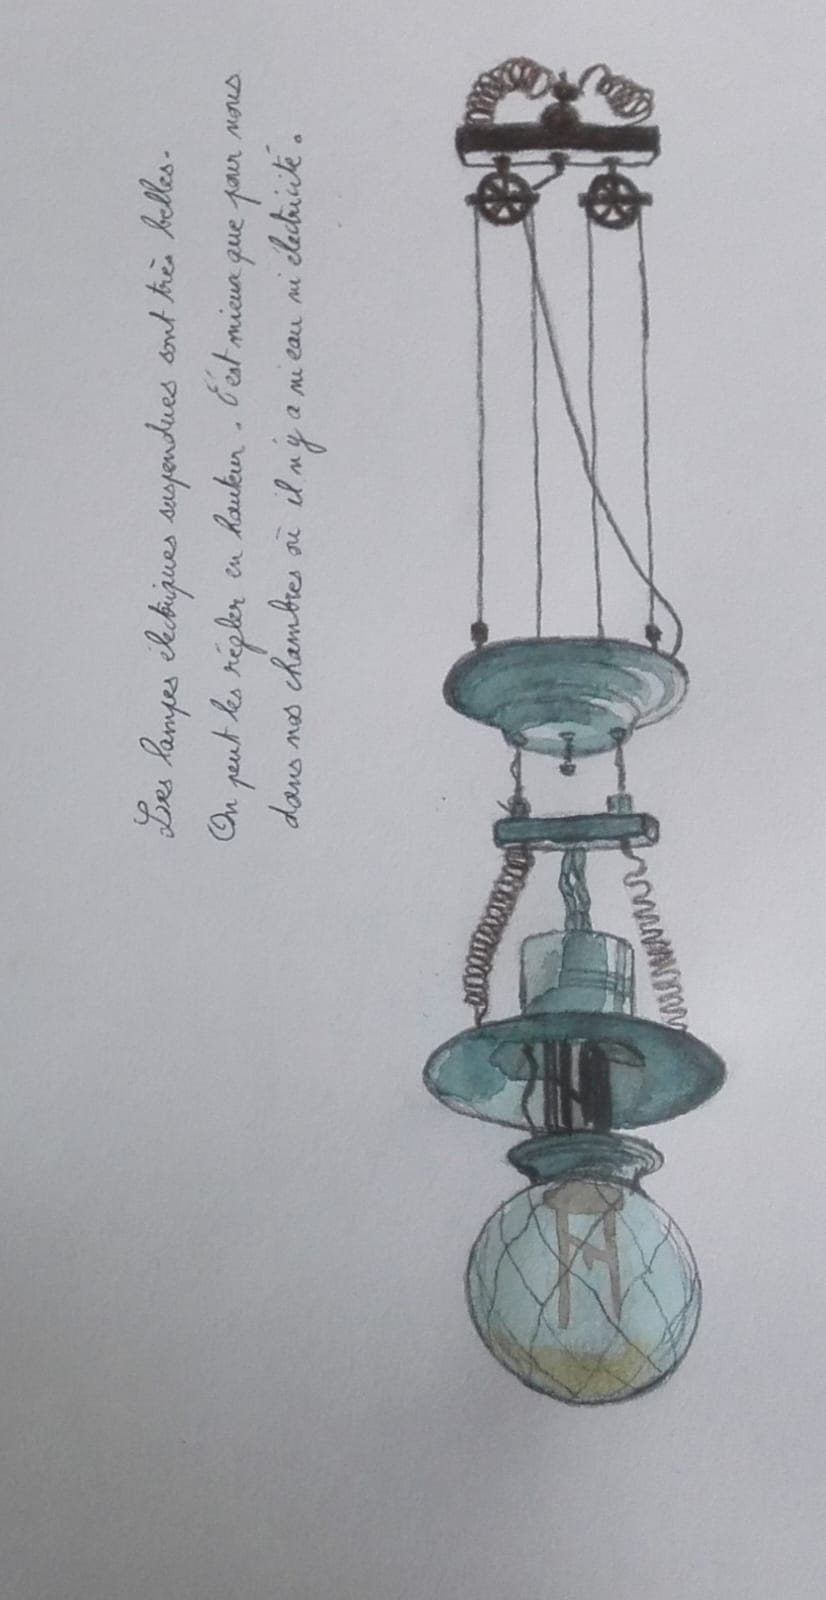 Les lampes électriques suspendues sont très belles.
On peut les régler en hauteur. C'est mieux que pour nous
dans nos chambres où il n'y a ni eau ni électricité.